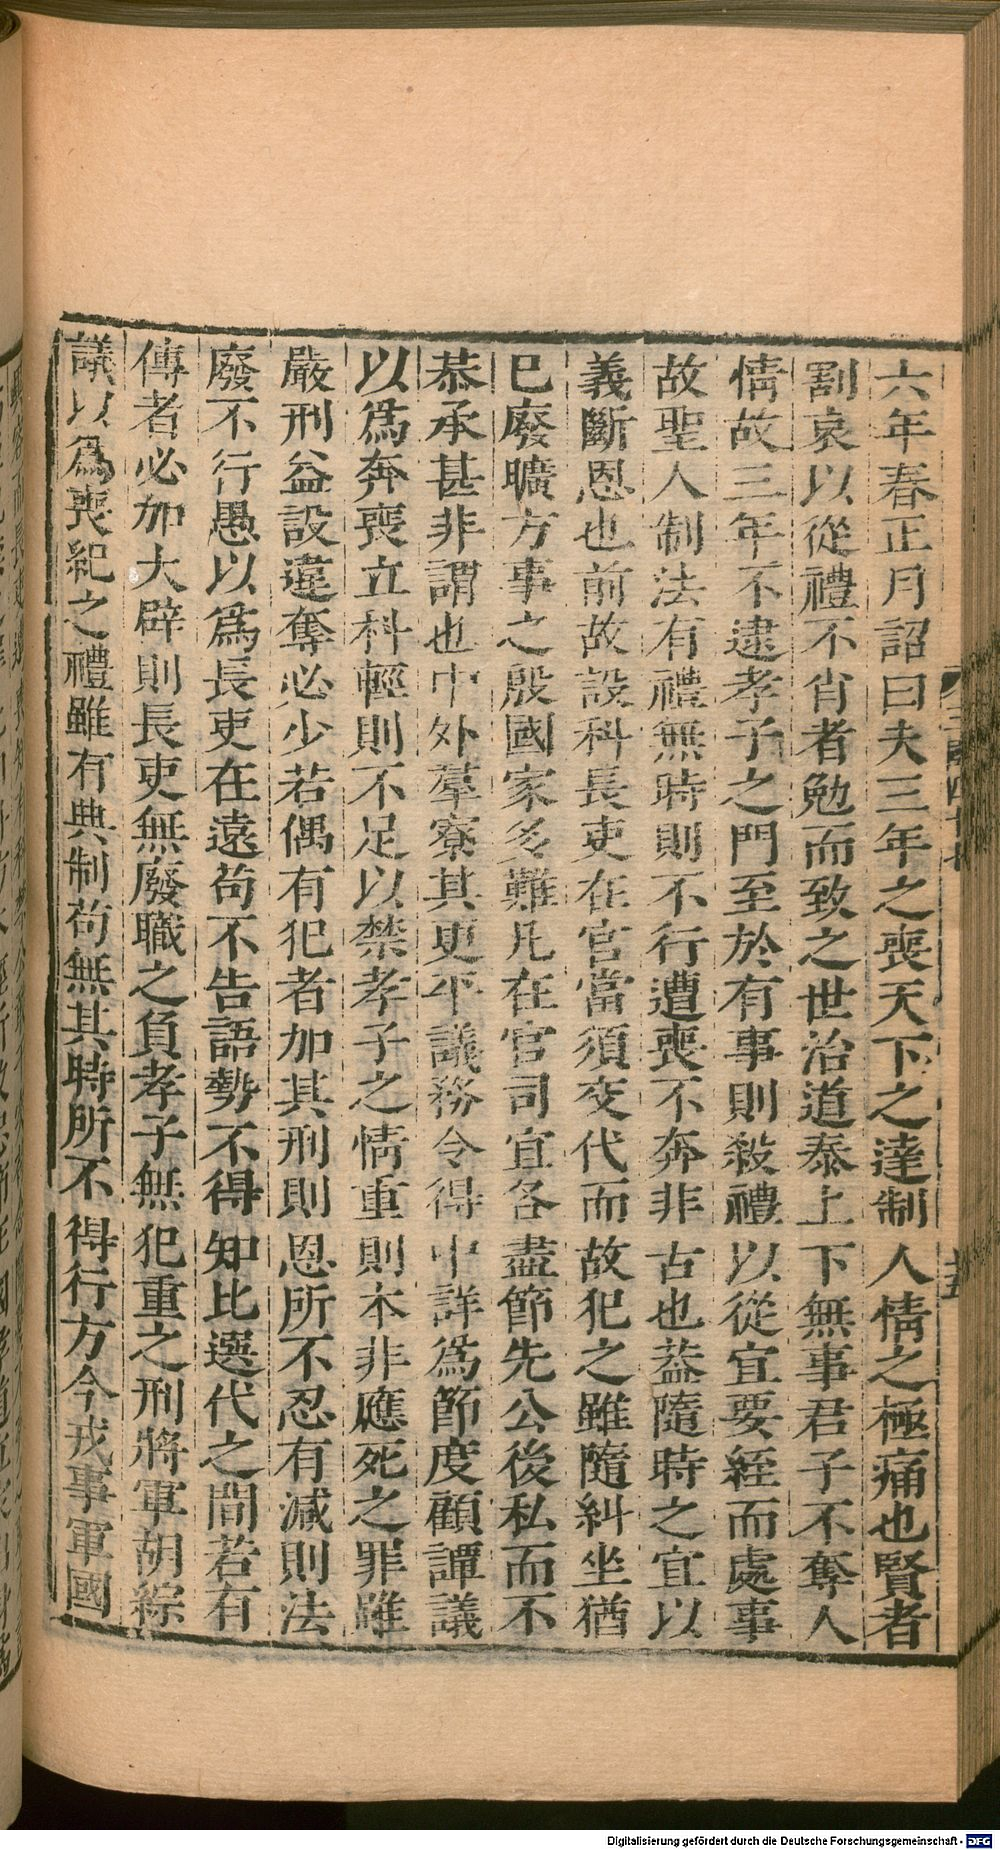 六年春正月詔曰夫三年之喪天下之達制人情之極痛也賢者
割哀以從禮不肖者勉而致之世治道泰上下無事君子不奪人
情故三年不逮孝子之門至於有事則殺禮以從宜要絰而處事
故聖人制法有禮無時則不行遭喪不奔非古也葢隨時之宜以
義斷恩也前故設科長吏在官當須交代而故犯之雖隨糾坐猶
已廢曠方事之殷國家多難凡在官司宜各盡節先公後私而不
恭承甚非謂也中外羣寮其更平議務令得中詳爲節度顧譚議
以爲奔喪立科輕則不足以禁孝子之情重則本非應死之罪雖
嚴刑益設違奪必少若偶有犯者加其刑則恩所不忍有減則法
廢不行愚以爲長吏在遠苟不告語勢不得知比選代之間若有
傳者必加大辟則長吏無廢職之負孝子無犯重之刑將軍胡綜
議以爲喪紀之禮雖有典制苟無其時所不得行方今戎事軍國
Digitalisierung gefördert durch die Deutsche Forschungsgemeinschaft - DFG